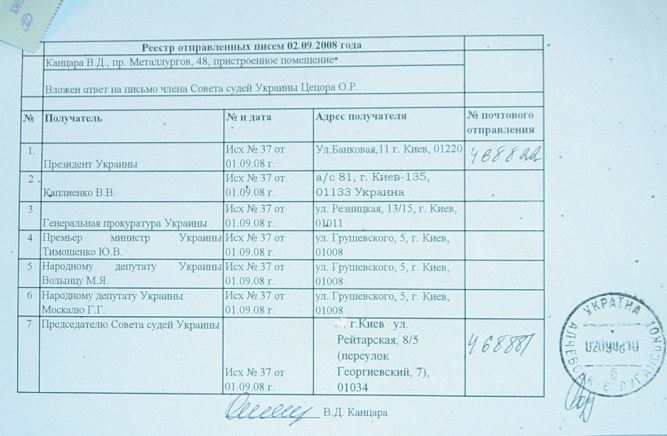 Реестр отправленных писем 02.09.2008 года
Канцара В.Д., пр. Металлургов, 48, пристроенное помещение*
Вложен ответ на письмо члена Совета судей Украины Цецора О.Р.
№ Получатель № и дата Адрес получателя № почтового
отправления
1. Президент Украины Исх № 37 от
01.09.08 г. Ул.Банковая,11 г. Киев, 01220 468822
2 Каплиенко В.В. Исх № 37 от
01.09.08 г. а/с 81, г. Киев-135,
01133 Украина
3 Генеральная прокуратура Украины Исх № 37 от
01.09.08 г. ул. Резницкая, 13/15, г. Киев,
01011
4 Премьер министр Украины
Тимошенко Ю.В. Исх № 37 от
01.09.08 г. ул. Грушевского, 5, г. Киев,
01008
5 Народному депутату Украины
Волынцу М.Я. Исх № 37 от
01.09.08 г. ул. Грушевского, 5, г. Киев,
01008
6 Народному депутату Украины
Москалю Г.Г. Исх № 37 от
01.09.08 г. ул. Грушевского, 5, г. Киев,
01008
7 Председателю Совета судей Украины Исх № 37 от
01.09.08 г. г.Киев ул.
Рейтарская, 8/5
(переулок
Георгиевский, 7),
01034 468881
В.Д. Канцара
УКРАЇНА
АЛЧЕВСЬК